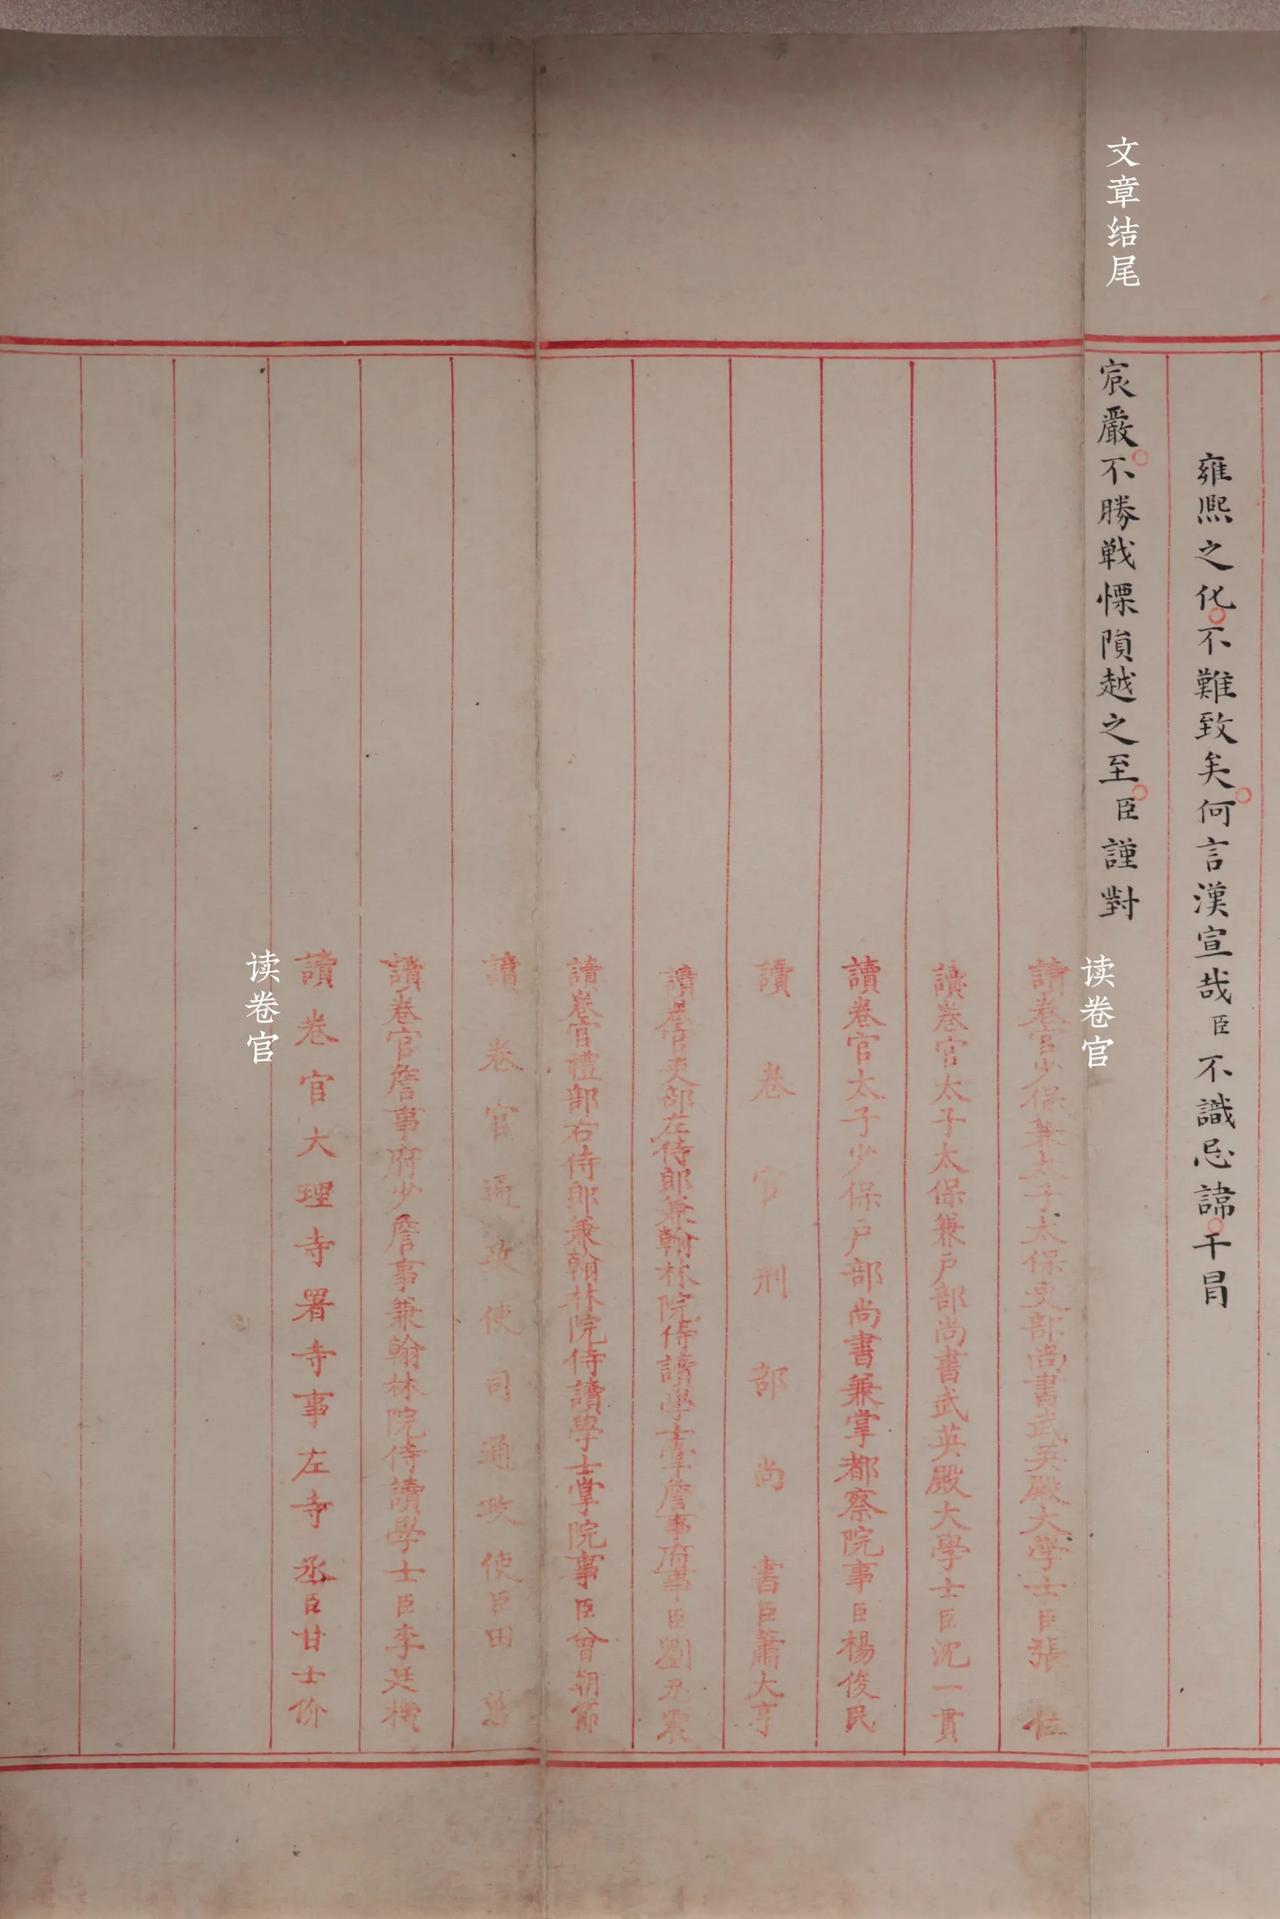 文章结尾
雍熙之化不難致矣何言漢宣哉臣不識忌諱干冒
宸嚴不勝戰慄隕越之至臣謹對
读卷官
讀卷官少保兼太子太保吏部尚書武英殿大學士臣張位
讀卷官太子太保兼戶部尚書武英殿大學士臣沈一貫
讀卷官太子少保戶部尚書兼掌都察院事臣楊俊民
讀卷官刑部尚書臣蕭大亨
讀卷官吏部左侍郎兼翰林院侍讀學士掌詹事府事臣劉元震
讀卷官禮部右侍郎兼翰林院侍讀學士掌院事臣曾朝節
讀卷官通政使司通政使臣田蕙
讀卷官詹事府少詹事兼翰林院侍讀學士臣李廷機
讀卷官大理寺署寺事左寺丞臣甘士价
读卷官